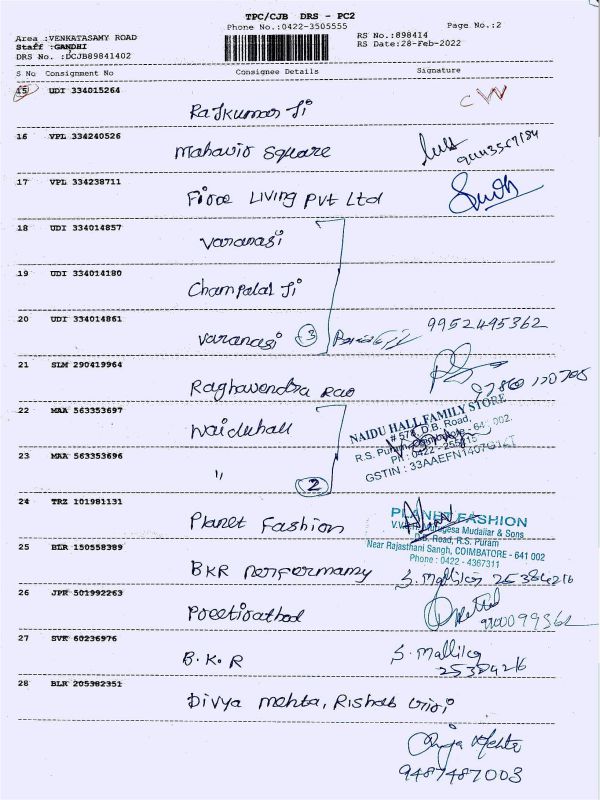 TPC/CJB DRS - PC2
Phone No.:0422-3505555
Page No.:2
Area :VENKATASAMY ROAD
RS No.:898414
Staff :GANDHI
RS Date:28-Feb-2022
DRS No. :DCJB89841402
S No Consignment No Consignee Details Signature
15 UDI 334015264
Rajkumar Ji
CW
16 VPL 334240526
Mahavir Square
17 VPL 334238711
Firoe Living Pvt Ltd
18 UDI 334014857
Varanasi
19 UDI 334014180
Champalal Ji
20 UDI 334014861
Varanasi 3
9952495362
21 SLM 290419964
Raghavendra Rao
22 MAA 563353697
Naiduhall
NAIDU HALL FAMILY STORE
# 574, D.B. Road,
R.S. Puram, 002.
23 MAA 563353696
"
2
24 TRZ 101981131
Planet Fashion
PLANET FASHION
Mudaliar & Sons
D.B. Road, R.S. Puram
Near Rajasthani Sangh, COIMBATORE - 641 002
Phone : 0422 - 4367311
25 BLR 150558389
BKR
S. Mallika 25384216
26 JPR 501992263
Preetirathod
27 SVK 60236976
B.K.R
S. Mallika
25384216
28 BLR 205382351
Divya Mehta, Rishab
Mehta
9487487003